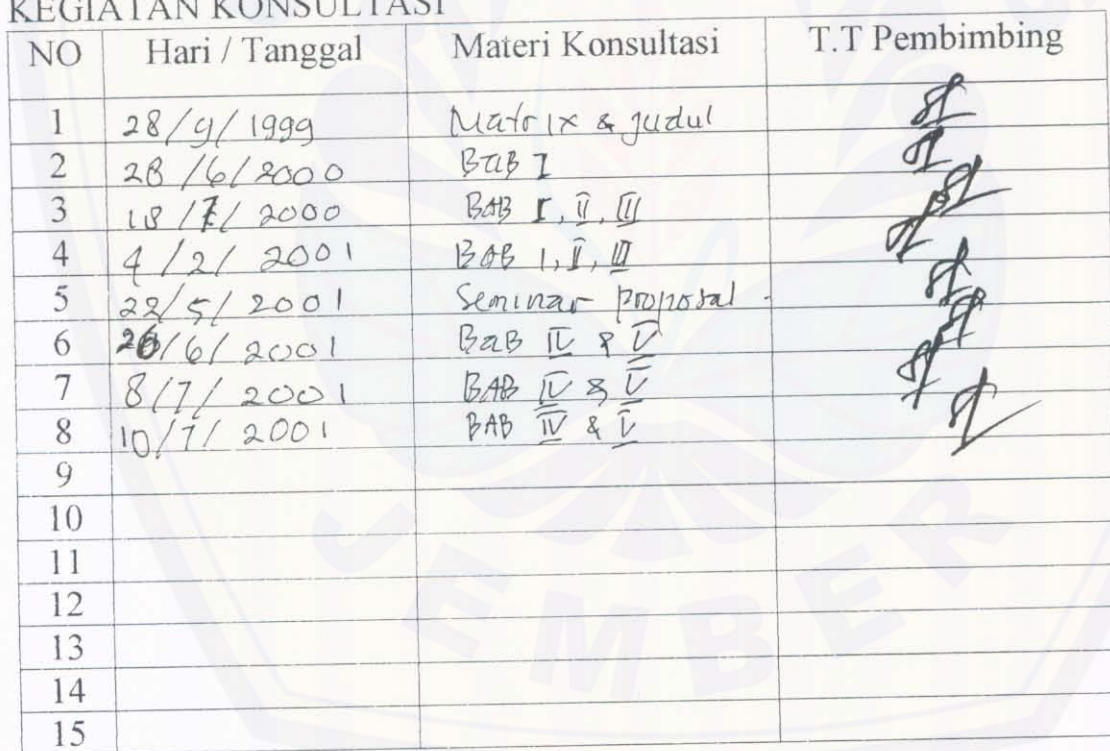 KEGIATAN KONSULTASI
NO Hari / Tanggal Materi Konsultasi T.T Pembimbing
1 28/9/1999 Matrix & judul
2 28/6/2000 BaB I
3 18/7/2000 BAB I, II, III
4 4/2/2001 BAB I, II, III
5 22/5/2001 Seminar proposal
6 26/6/2001 BaB IV & V
7 8/7/2001 BAB IV & V
8 10/7/2001 BAB IV & V
9
10
11
12
13
14
15
JEMBER